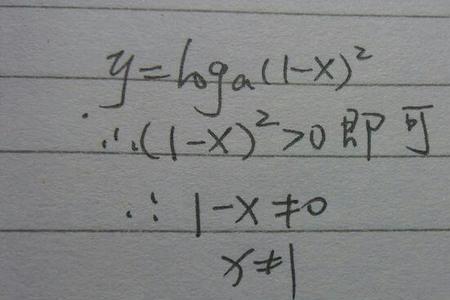 y=logₐ(1-x)²
∴(1-x)²>0即可
∴ 1-x≠0
x≠1